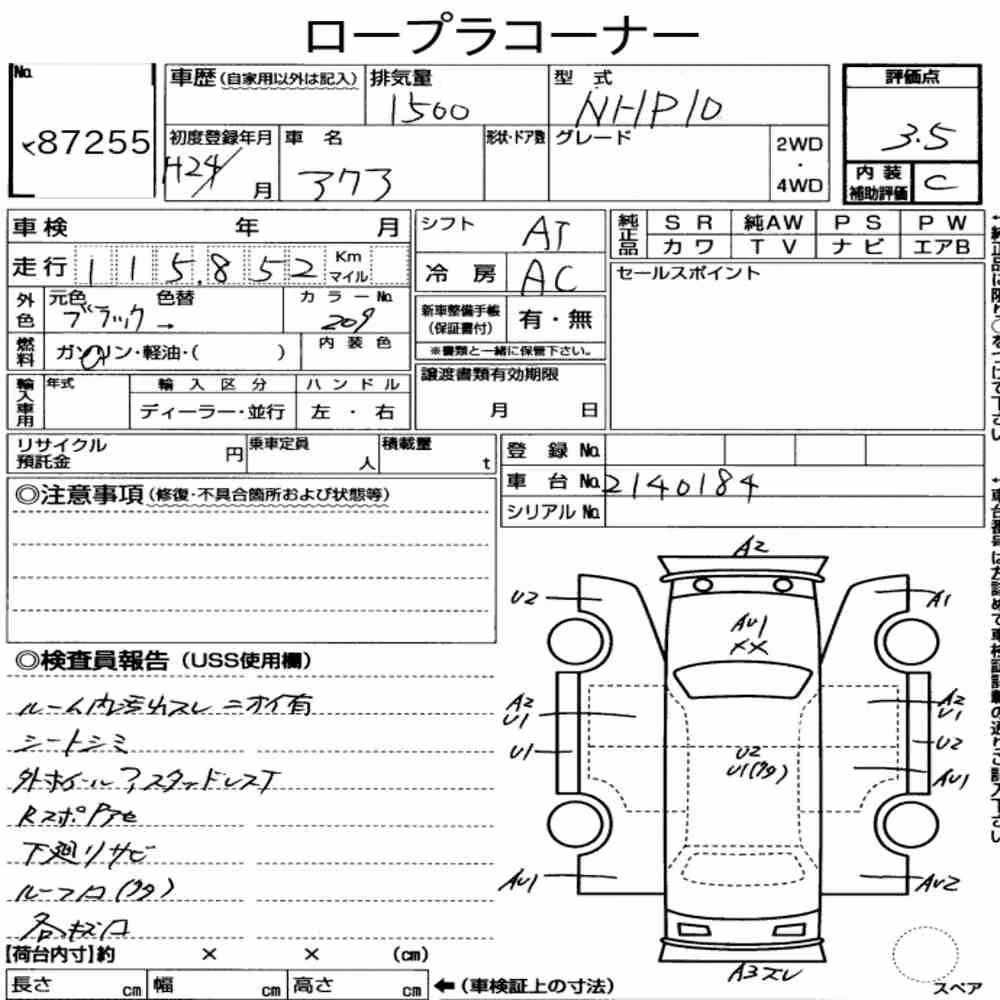 ロープラコーナー
No.
87255
車歴(自家用以外は記入)
排気量
1500
型式
NHP10
評価点
3.5
内装
補助評価
C
初度登録年月
H24/
月
車名
アクア
形状・ドア数
グレード
2WD
・
4WD
車検 年 月
走行 115,852 Km
マイル
外色
元色
ブラック→
色替
カラーNo.
209
燃料
ガソリン・軽油・( )
内装色
輸入車用
年式
輸入区分
ディーラー・並行
ハンドル
左・右
シフト
AT
冷房
AC
新車整備手帳
(保証書付)
有・無
※書類と一緒に保管下さい。
譲渡書類有効期限
月 日
純正品
SR 純AW PS PW
カワ TV ナビ エアB
セールスポイント
リサイクル
預託金
円
乗車定員
人
積載量
t
登録No.
車台No. 2140184
シリアルNo.
◎注意事項(修復・不具合箇所および状態等)
◎検査員報告(USS使用欄)
ルーム内汚レスレ ニオイ有
シートシミ
外ホイール?スタッドレスT
下廻リサビ
A2
U2
A1
AU1
XX
A2
U1
A2
U1
U1
U2
U2
AU1
AU1
AU2
A3スレ
スペア
【荷台内寸】約 × × (cm)
長さ cm 幅 cm 高さ cm
←(車検証上の寸法)